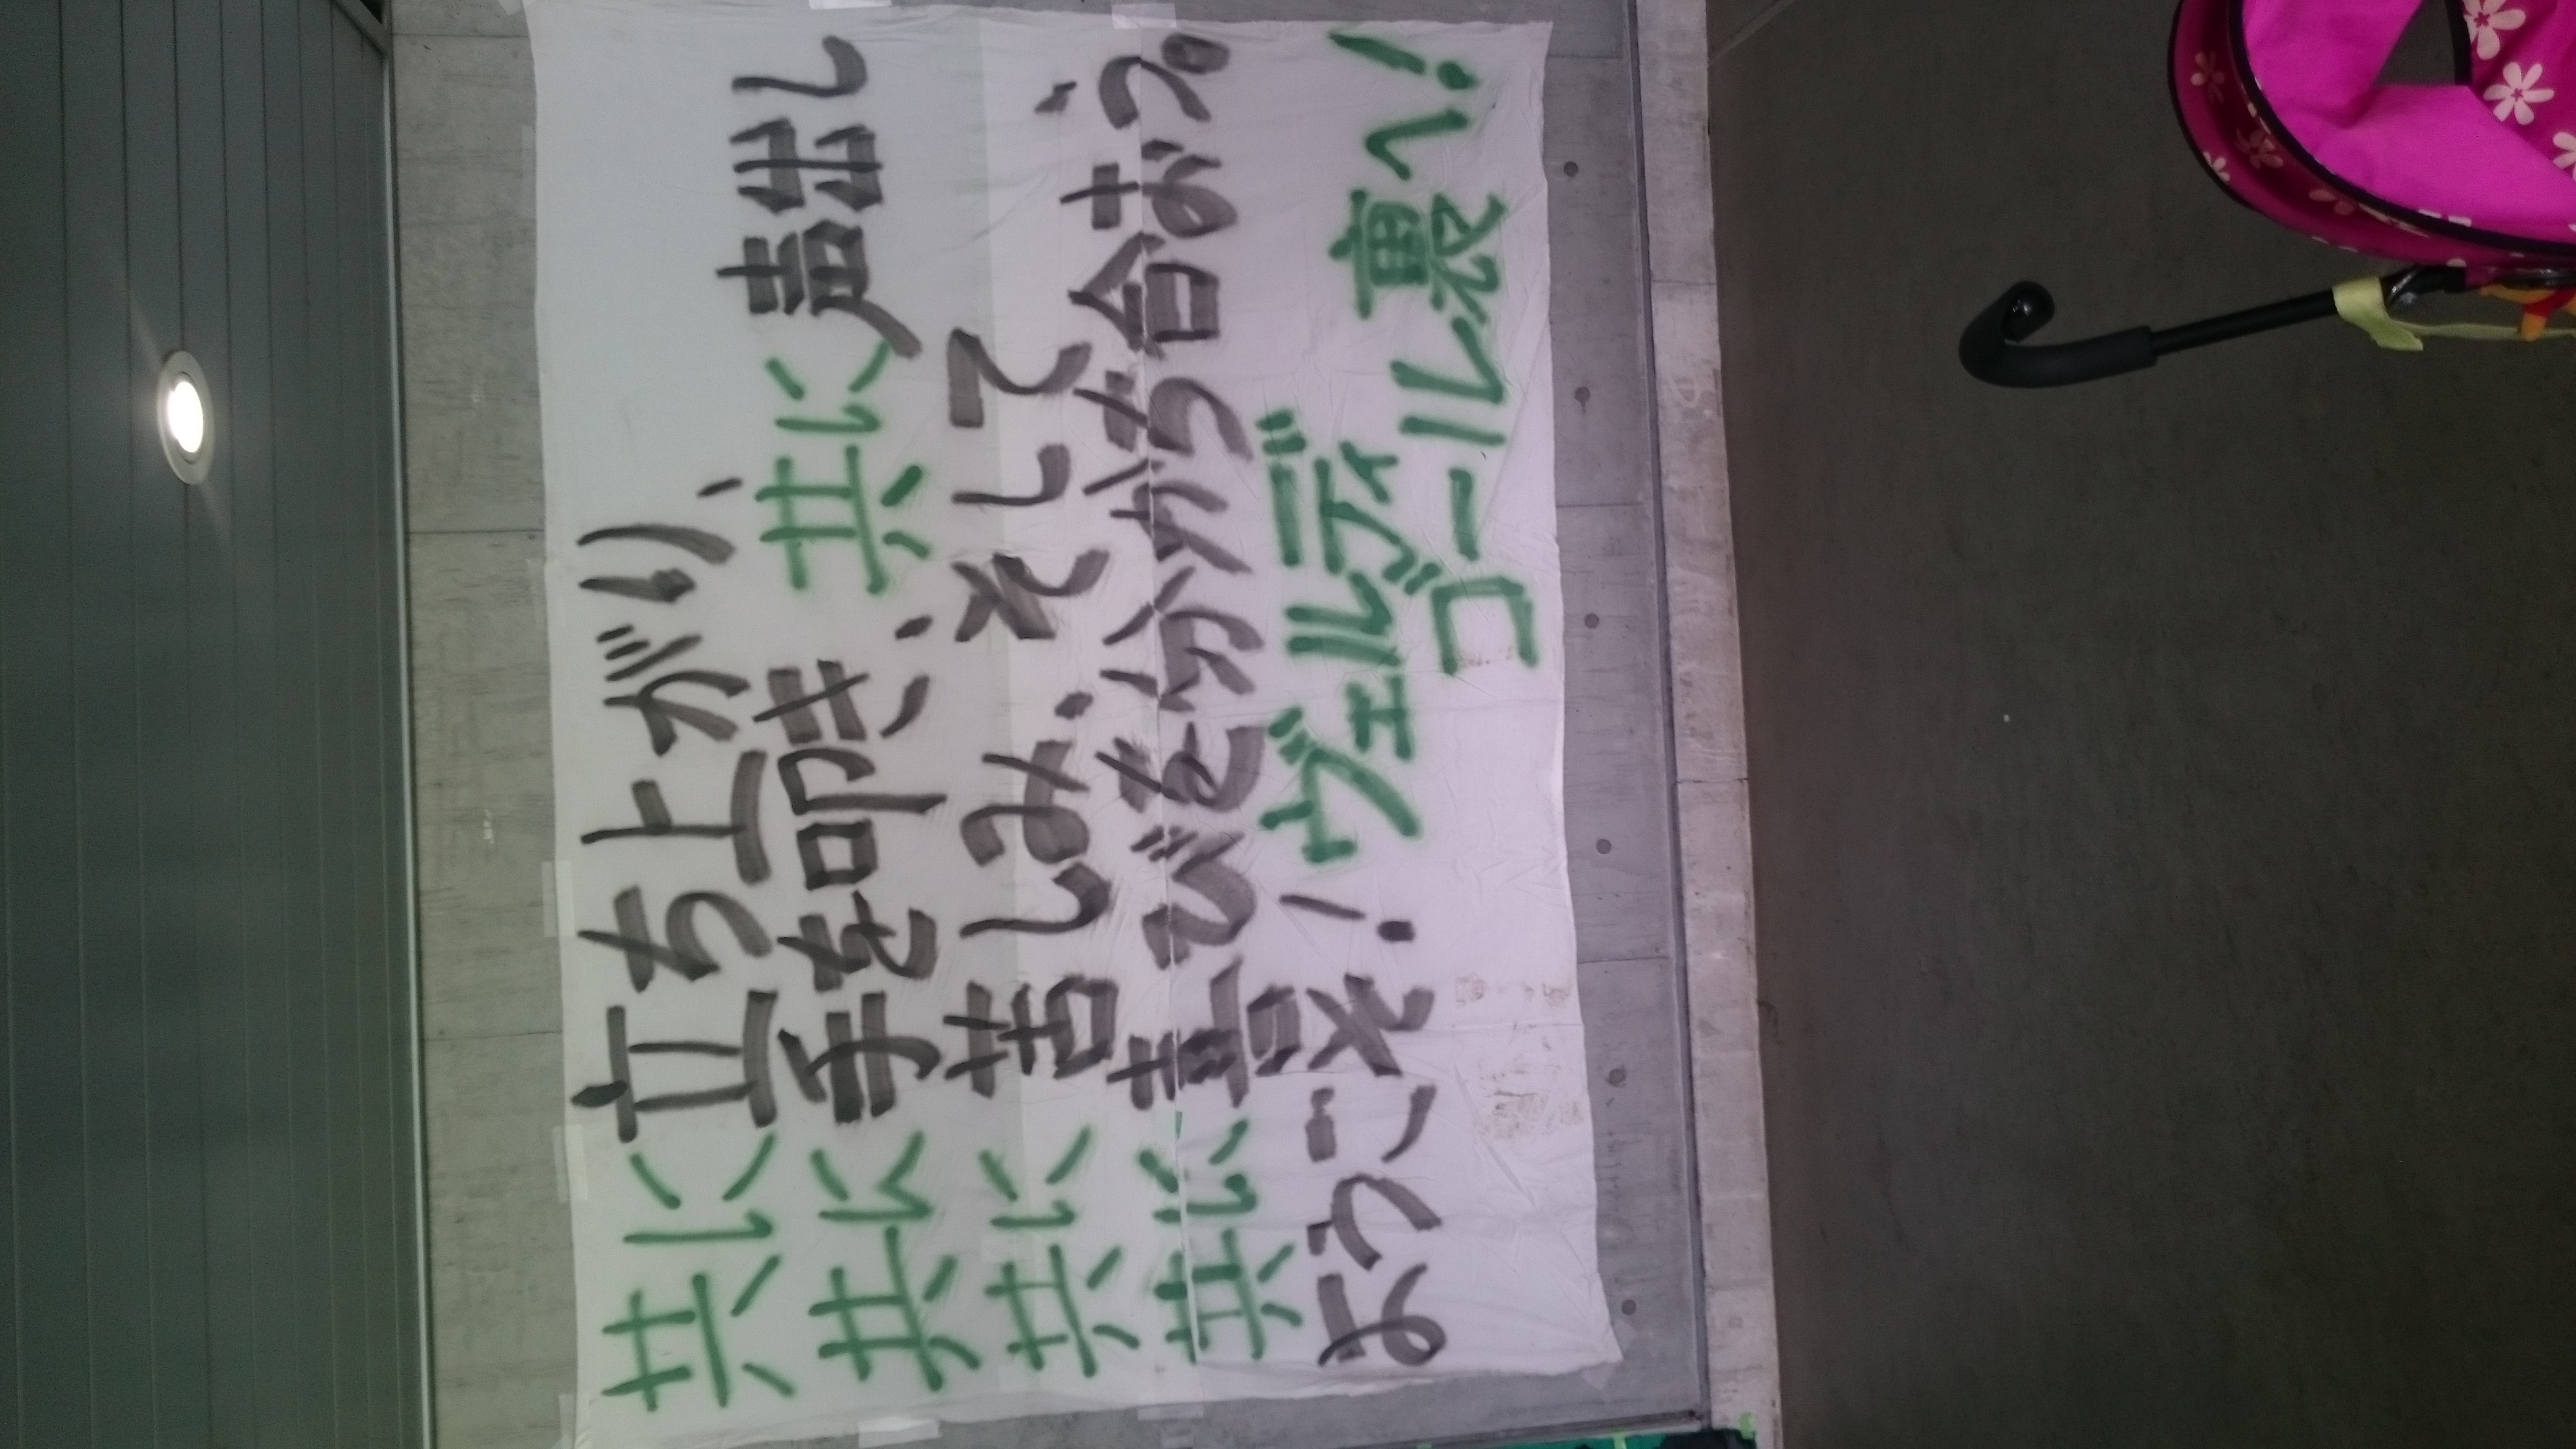 共に立ち上がり、
共に手を叩き、共に声出し
共に苦しみ、そして
共に喜びを分かち合おう。
ようこそ!ヴェルディ
ゴール裏へ!